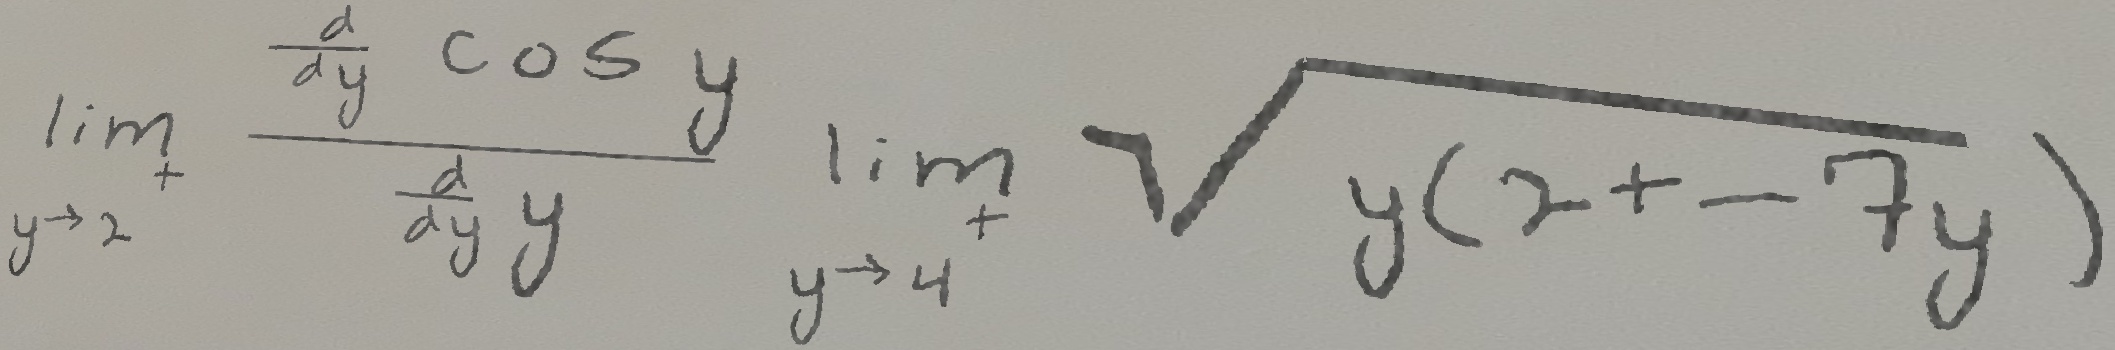 \lim_{y \to 2^+} \frac{\frac{d}{dy} \cos y}{\frac{d}{dy} y} \lim_{y \to 4^+} \sqrt{y(2 + -7y)}